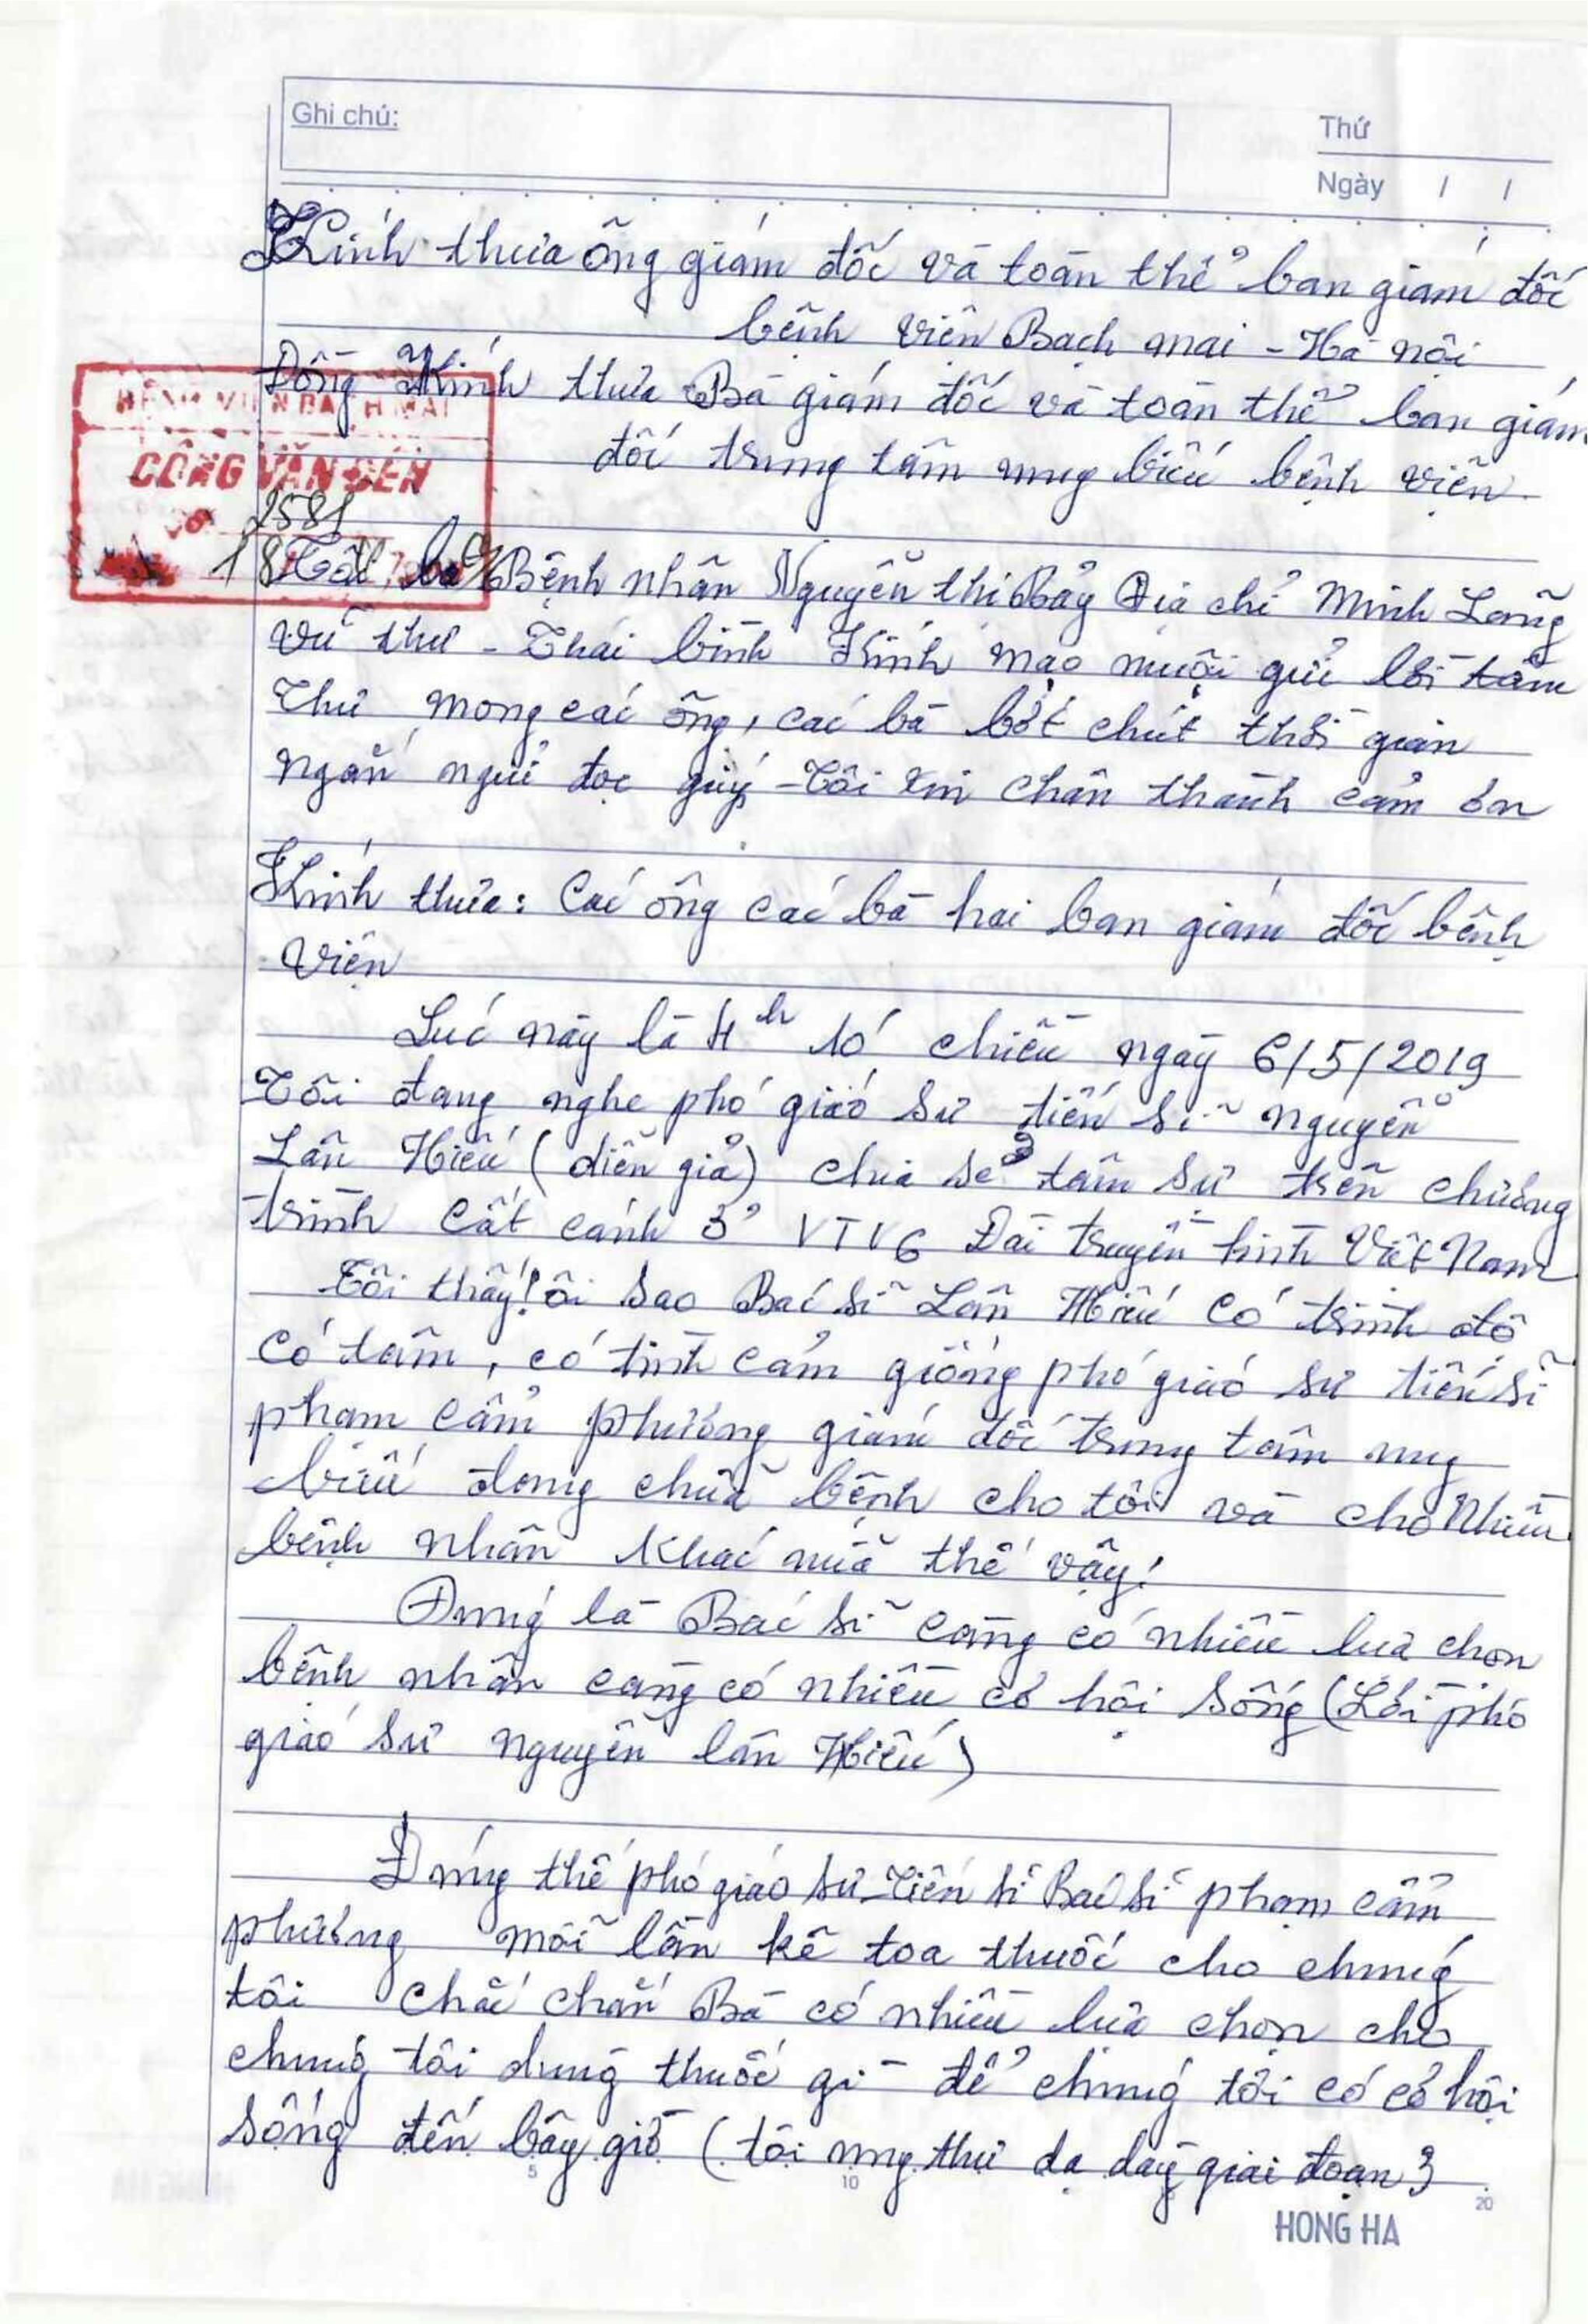 Ghi chú:
Thứ
Ngày / /
Kính thưa ông giám đốc và toàn thể ban giám đốc
bệnh viện Bạch mai - Hà nội
Đồng Kính thưa Bà giám đốc và toàn thể ban giám
đốc trung tâm ung biếu bệnh viện
BỆNH VIỆN BẠCH MAI
CÔNG VĂN ĐẾN
2581
18
Tôi là Bệnh nhân Nguyễn thị Bảy Địa chỉ Minh Lãng
Vũ thư - Thái bình Kính mạo muội gửi lời tâm
Thư mong các ông, các bà bớt chút thời gian
ngắn ngủi đọc giùm - Tôi xin chân thành cảm ơn
Kính thưa: Các ông các bà hai ban giám đốc bệnh
viện
Lúc này là 4h 10' chiều ngày 6/5/2019
Tôi đang nghe phó giáo sư tiến sĩ nguyễn
Lân Hiếu (diễn giả) chia sẻ tâm sự trên chương
trình cất cánh ở VTV6 Đài truyền hình Việt Nam
Tôi thấy! ôi sao Bác sĩ Lân Hiếu có trình độ
có tâm, có tình cảm giống phó giáo sư tiến sĩ
phạm cẩm phương giám đốc trung tâm ung
biếu đang chữa bệnh cho tôi và cho Nhiều
bệnh nhân khác nữa thế vậy!
Đúng là Bác sĩ càng có nhiều lựa chọn
bệnh nhân càng có nhiều cơ hội sống (Lời phó
giáo sư nguyễn lân Hiếu)
Đúng thế phó giáo sư - Tiến sĩ Bác sĩ phạm cẩm
phương mỗi lần kê toa thuốc cho chúng
tôi chắc chắn Bà có nhiều lựa chọn cho
chúng tôi dùng thuốc gì để chúng tôi có cơ hội
sống đến bây giờ (tôi ung thư dạ dày giai đoạn 3
5 10 20
HONG HA